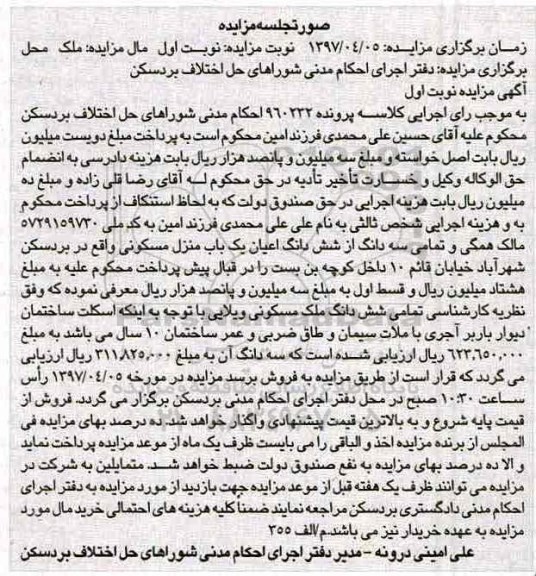 صورتجلسه مزایده
زمان برگزاری مزایده: ۱۳۹۷/۰۴/۰۵ نوبت مزایده: نوبت اول مال مزایده: ملک محل
برگزاری مزایده: دفتر اجرای احکام مدنی شوراهای حل اختلاف بردسکن
آگهی مزایده نوبت اول
به موجب رای اجرایی کلاسه پرونده ۹۶۰۲۳۲ احکام مدنی شوراهای حل اختلاف بردسکن
محکوم علیه آقای حسین علی محمدی فرزند امین محکوم است به پرداخت مبلغ دویست میلیون
ریال بابت اصل خواسته و مبلغ سه میلیون و پانصد هزار ریال بابت هزینه دادرسی به انضمام
حق الوکاله وکیل و خسارت تأخیر تأدیه در حق محکوم له آقای رضا قلی زاده و مبلغ ده
میلیون ریال بابت هزینه اجرایی در حق صندوق دولت که به لحاظ استنکاف از پرداخت محکوم
به و هزینه اجرایی شخص ثالثی به نام علی علی محمدی فرزند امین به کد ملی ۵۷۲۹۱۵۹۷۳۰
مالک همگی و تمامی سه دانگ از شش دانگ اعیان یک باب منزل مسکونی واقع در بردسکن
شهرآباد خیابان قائم ۱۰ داخل کوچه بن بست را در قبال پیش پرداخت محکوم علیه به مبلغ
هشتاد میلیون ریال و قسط اول به مبلغ سه میلیون و پانصد هزار ریال معرفی نموده که وفق
نظریه کارشناسی تمامی شش دانگ ملک مسکونی ویلایی با توجه به اینکه اسکلت ساختمان
دیوار باربر آجری با ملات سیمان و طاق ضربی و عمر ساختمان ۱۰ سال می باشد به مبلغ
۶۲۳,۶۵۰,۰۰۰ ریال ارزیابی شده است که سه دانگ آن به مبلغ ۳۱۱,۸۲۵,۰۰۰ ریال ارزیابی
می گردد که قرار است از طریق مزایده به فروش برسد مزایده در مورخه ۱۳۹۷/۰۴/۰۵ رأس
ساعت ۱۰:۳۰ صبح در محل دفتر اجرای احکام مدنی بردسکن برگزار می گردد. فروش از
قیمت پایه شروع و به بالاترین قیمت پیشنهادی واگذار خواهد شد. ده درصد بهای مزایده فی
المجلس از برنده مزایده اخذ و الباقی را می بایست ظرف یک ماه از موعد مزایده پرداخت نماید
و الا ده درصد بهای مزایده به نفع صندوق دولت ضبط خواهد شد. متمایلین به شرکت در
مزایده می توانند ظرف یک هفته قبل از موعد مزایده جهت بازدید از مورد مزایده به دفتر اجرای
احکام مدنی دادگستری بردسکن مراجعه نمایند ضمناً کلیه هزینه های احتمالی خرید مال مورد
مزایده به عهده خریدار نیز می باشد.م/الف ۳۵۵
علی امینی درونه - مدیر دفتر اجرای احکام مدنی شوراهای حل اختلاف بردسکن